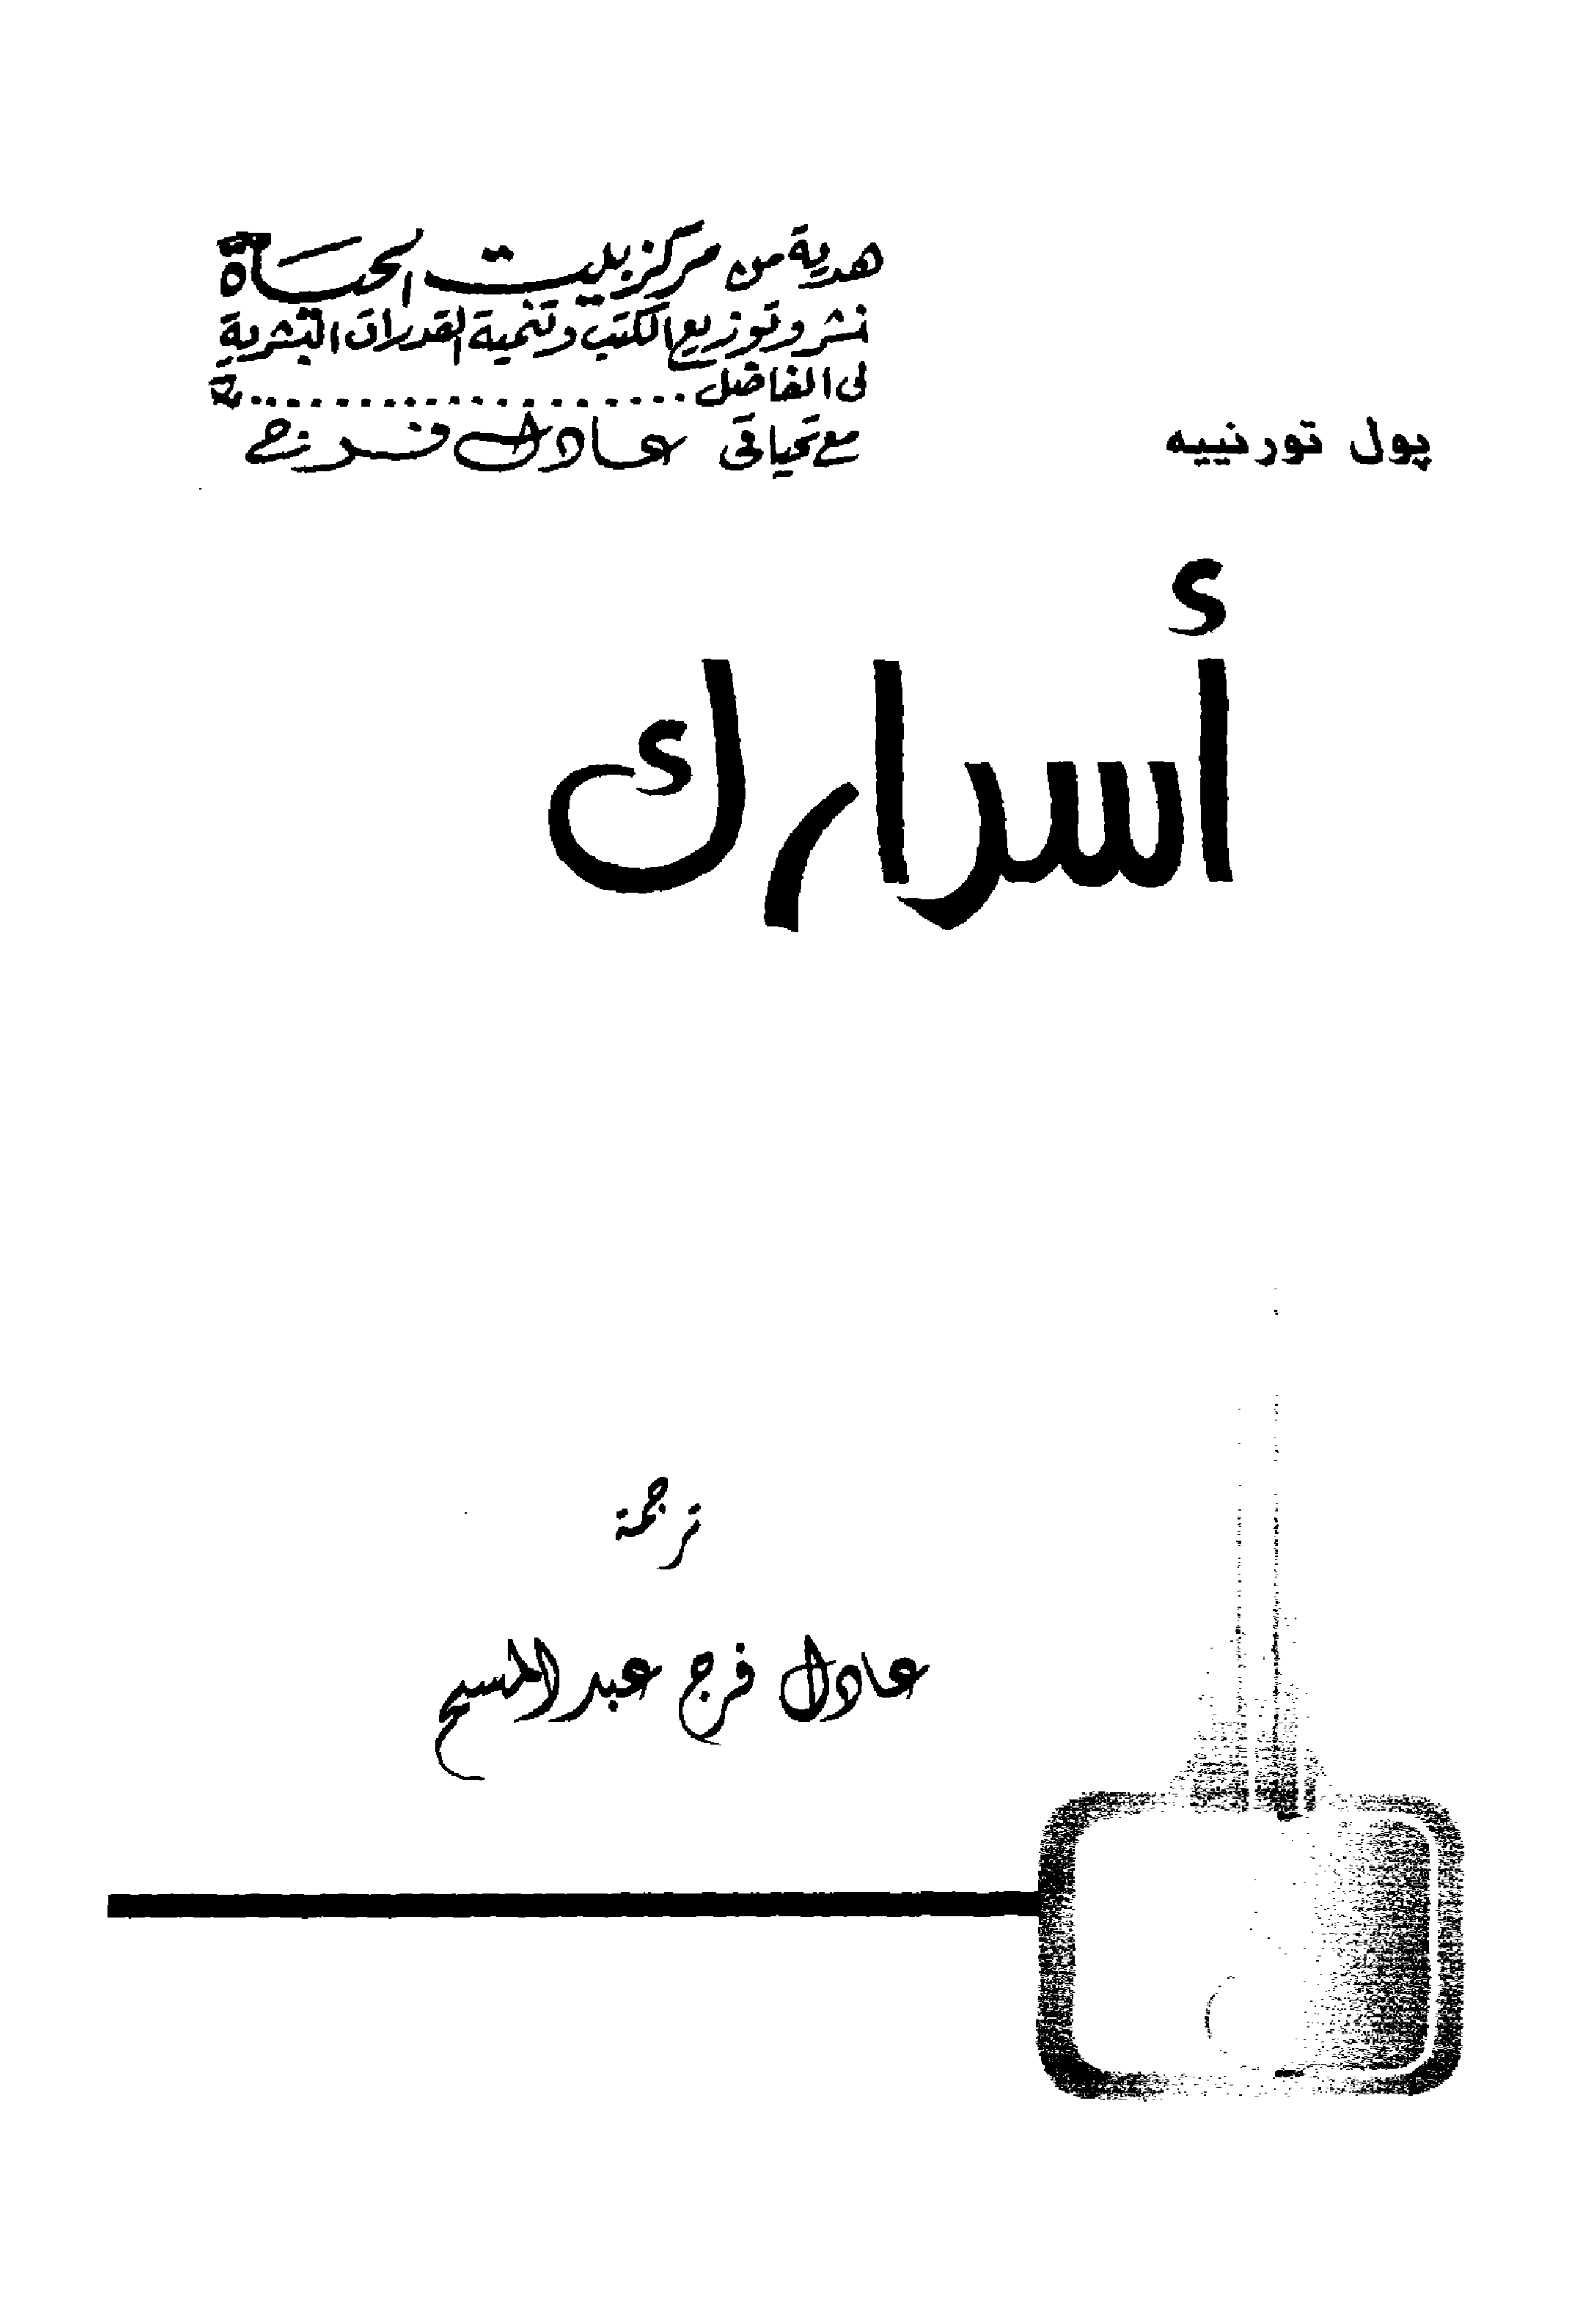 هدية من مركز بيت الحياة
نشر وتوزيع الكتب وتنمية القدرات البشرية
لى الفاضل ....................
مع تحياتى عادل فرج
پول تورنييه
أسرارك
ترجمة
عادل فرج عبد المسيح